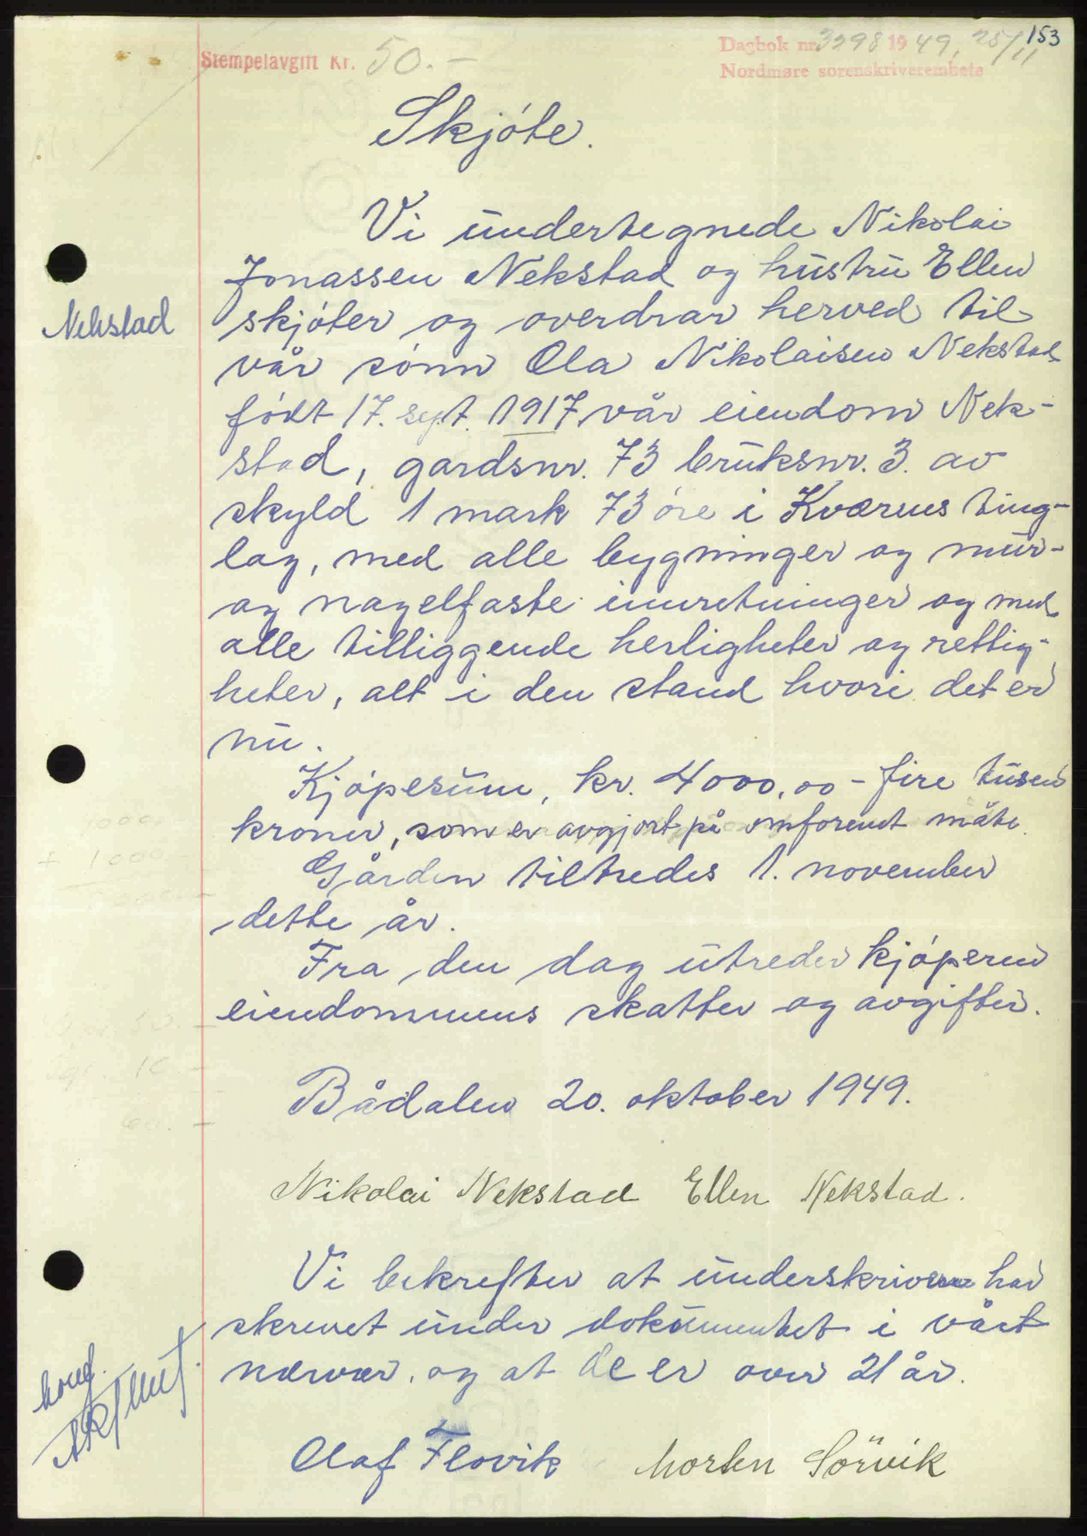 153
Stempelavgift Kr. 50.-
Dagbok nr. 3298 1949, 25/11
Nordmøre sorenskriverembete
Skjöte.
Vi undertegnede Nikolai
Jonassen Nekstad og hustru Ellen
Nekstad
skjöter og overdrar herved til
vår sönn Ola Nikolaisen Nekstad
födt 17. sept. 1917 vår eiendom Nek-
stad, gardsnr. 73 bruksnr. 3. av
skyld 1 mark 73 öre i Kværnes ting-
lag, med alle bygninger og mur-
og nagelfaste innretninger og med
alle tilliggende herligheter og rettig-
heter, alt i den stand hvori det er
nu.
Kjöpesum, kr. 4000,00 - fire tusen
kroner, som er avgjort på omforent måte.
Gården tiltredes 1. november
dette år.
Fra den dag utreder kjöperen
eiendommens skatter og avgifter.
Bådalen 20. oktober 1949.
Nikolai Nekstad Ellen Nekstad.
Vi bekrefter at underskriverne har
skrevet under dokumentet i vårt
nærvær. og at de er over 21 år.
Olaf Flovik Morten Sörvik